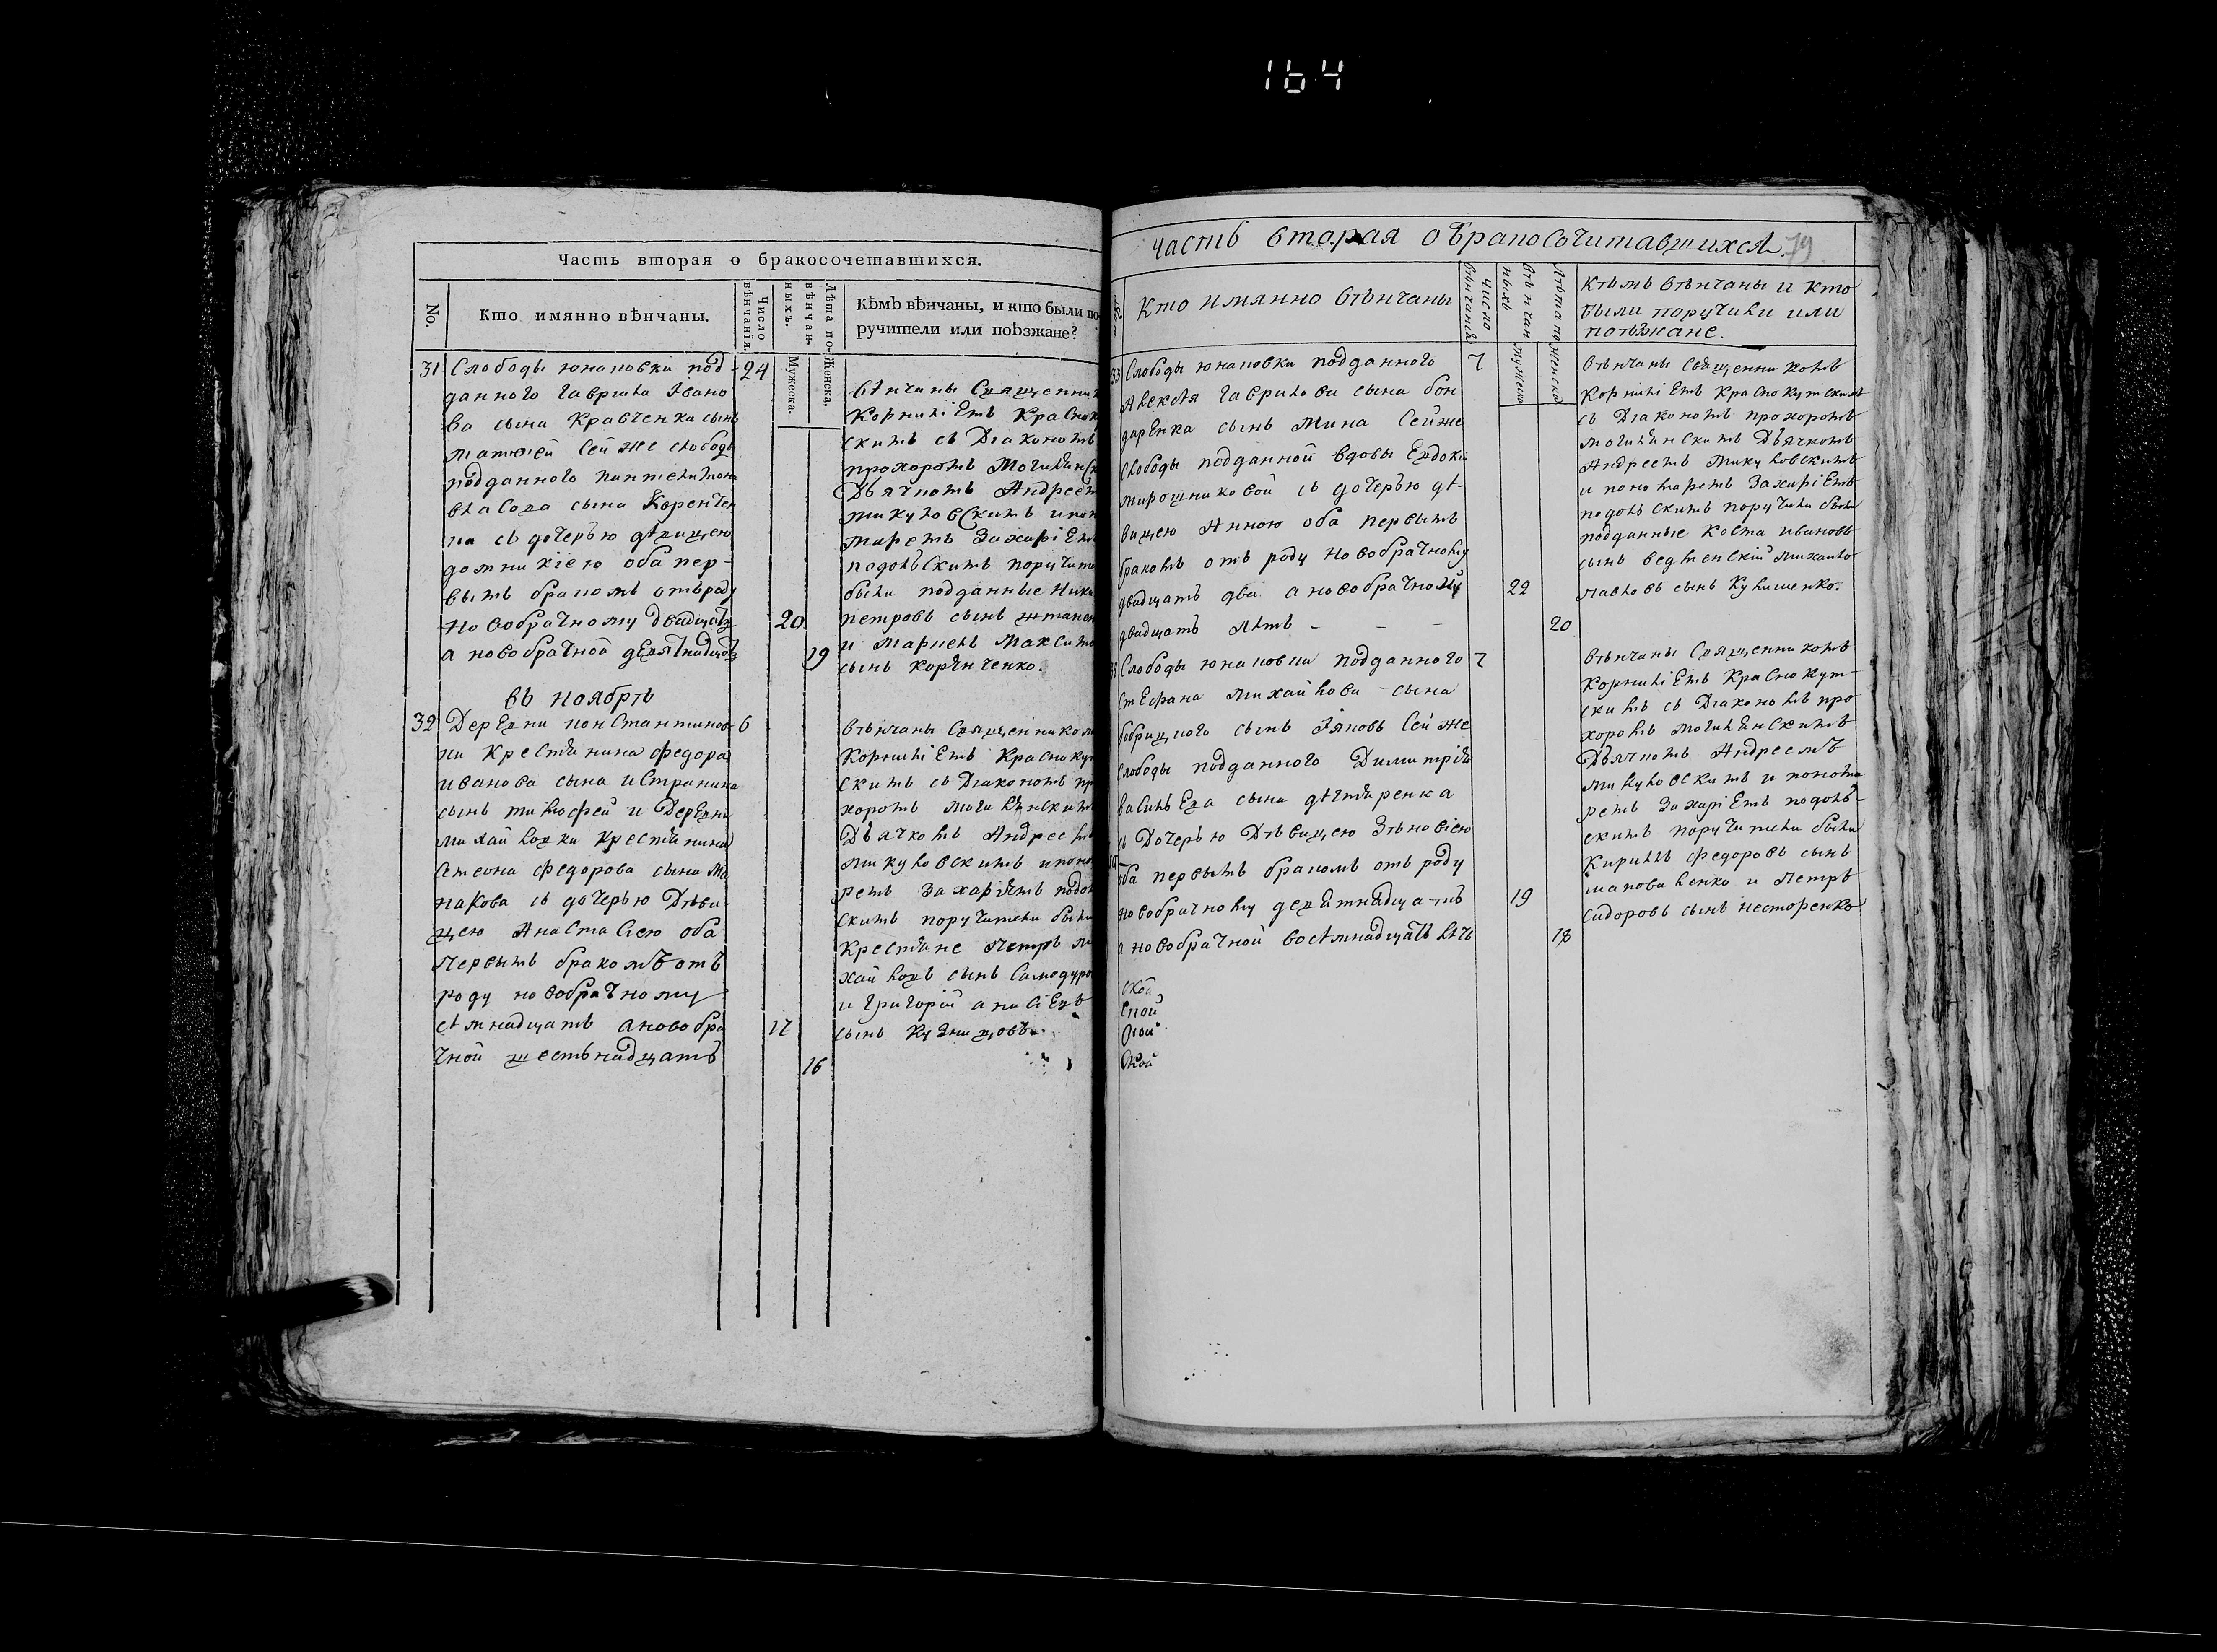 164
Часть вторая о бракосочетавшихся.
No.
Кто имянно вѣнчаны.
Число вѣнчанія.
Лѣта повѣнчанныхъ.
Мужеска.
Женска.
Кѣмъ вѣнчаны, и кто были по-
ручители или поѣзжане?
31 Слободы Юнаковки под- 24
данного Гаврила Ивано
ва сына Кравченка сынъ
Матѳей сей же слободы
подданного
Власова сына
на съ дочерью дѣвицею
оба пер-
вымъ бракомъ отъ роду
новобрачному двадцать 20
а новобрачной девятнадцать 19
вѣнчаны Священник
Корниліемъ Красноку
скимъ съ Діакономъ
Прохоромъ Могилянск
Дьячкомъ Андреем
Микуловскимъ и пон
маремъ Захаріем
подолскимъ поручите
были подданные Ники
Петровъ сынъ
и Максимо
сынъ
въ ноябрѣ
32 Деревни Константинов- 6
ки Крестянина Федора
Иванова сына
сынъ Тимофей и Деревни
Михайловки Крестянина
Симеона Федорова сына
съ дочерью Дѣви-
цею Анастасіею оба
первымъ бракомъ отъ
роду новобрачному
семнадцать а новобра 17
чной шестьнадцать 16
вѣнчаны Священником
Корниліемъ Красноку
скимъ съ Діакономъ пр
хоромъ Могилянским
Дьячкомъ Андреемъ
Микуловскимъ и поно
ремъ Захаріемъ подол
скимъ поручители были
Крестяне Петръ Ми
хайловъ сынъ Самодуро
и Григорій
сынъ Кузнецовъ
часть вторая о бракосочитавшихся. 79
Кто имянно вѣнчаны
число вѣнчанія
лѣта повѣнчанныхъ
мужеска
женска
Кѣмъ вѣнчаны и кто
были поручики или
поѣзжане.
33 Слободы Юнаковки подданного 7
Алексѣя Гаврилова сына Бон
даренка сынъ Мина сей же
слободы подданной вдовы Евдоки
Мирошниковой съ дочерью дѣ-
вицею Анною оба первымъ
бракомъ отъ роду новобрачному
двадцать два а новобрачной 22
двадцать лѣтъ - - - 20
вѣнчаны Священникомъ
Корниліемъ Краснокутскимъ
съ Діакономъ Прохоромъ
Могилянскимъ Дьячкомъ
Андреемъ Микуловскимъ
и понамаремъ Захаріемъ
подолскимъ поручики были
подданные Косма Ивановъ
сынъ Михайло
Павловъ сынъ
Слободы Юнаковки подданного 7
Стефана Михайлова сына
сынъ Яковъ сей же
слободы подданного Димитрія
Васильева сына
съ Дочерью Дѣвицею Зѣновіею
оба первымъ бракомъ отъ роду
новобрачному девятнадцать 19
а новобрачной восемнадцать лѣтъ 18
вѣнчаны Священникомъ
Корниліемъ Краснокут-
скимъ съ Діакономъ Про
хоромъ Могилянскимъ
Дьячкомъ Андреемъ
Микуловскимъ и понома
ремъ Захаріемъ подол-
скимъ поручители были
Кириллъ Федоровъ сынъ
Шаповаленко и Петръ
Сидоровъ сынъ Несторенко